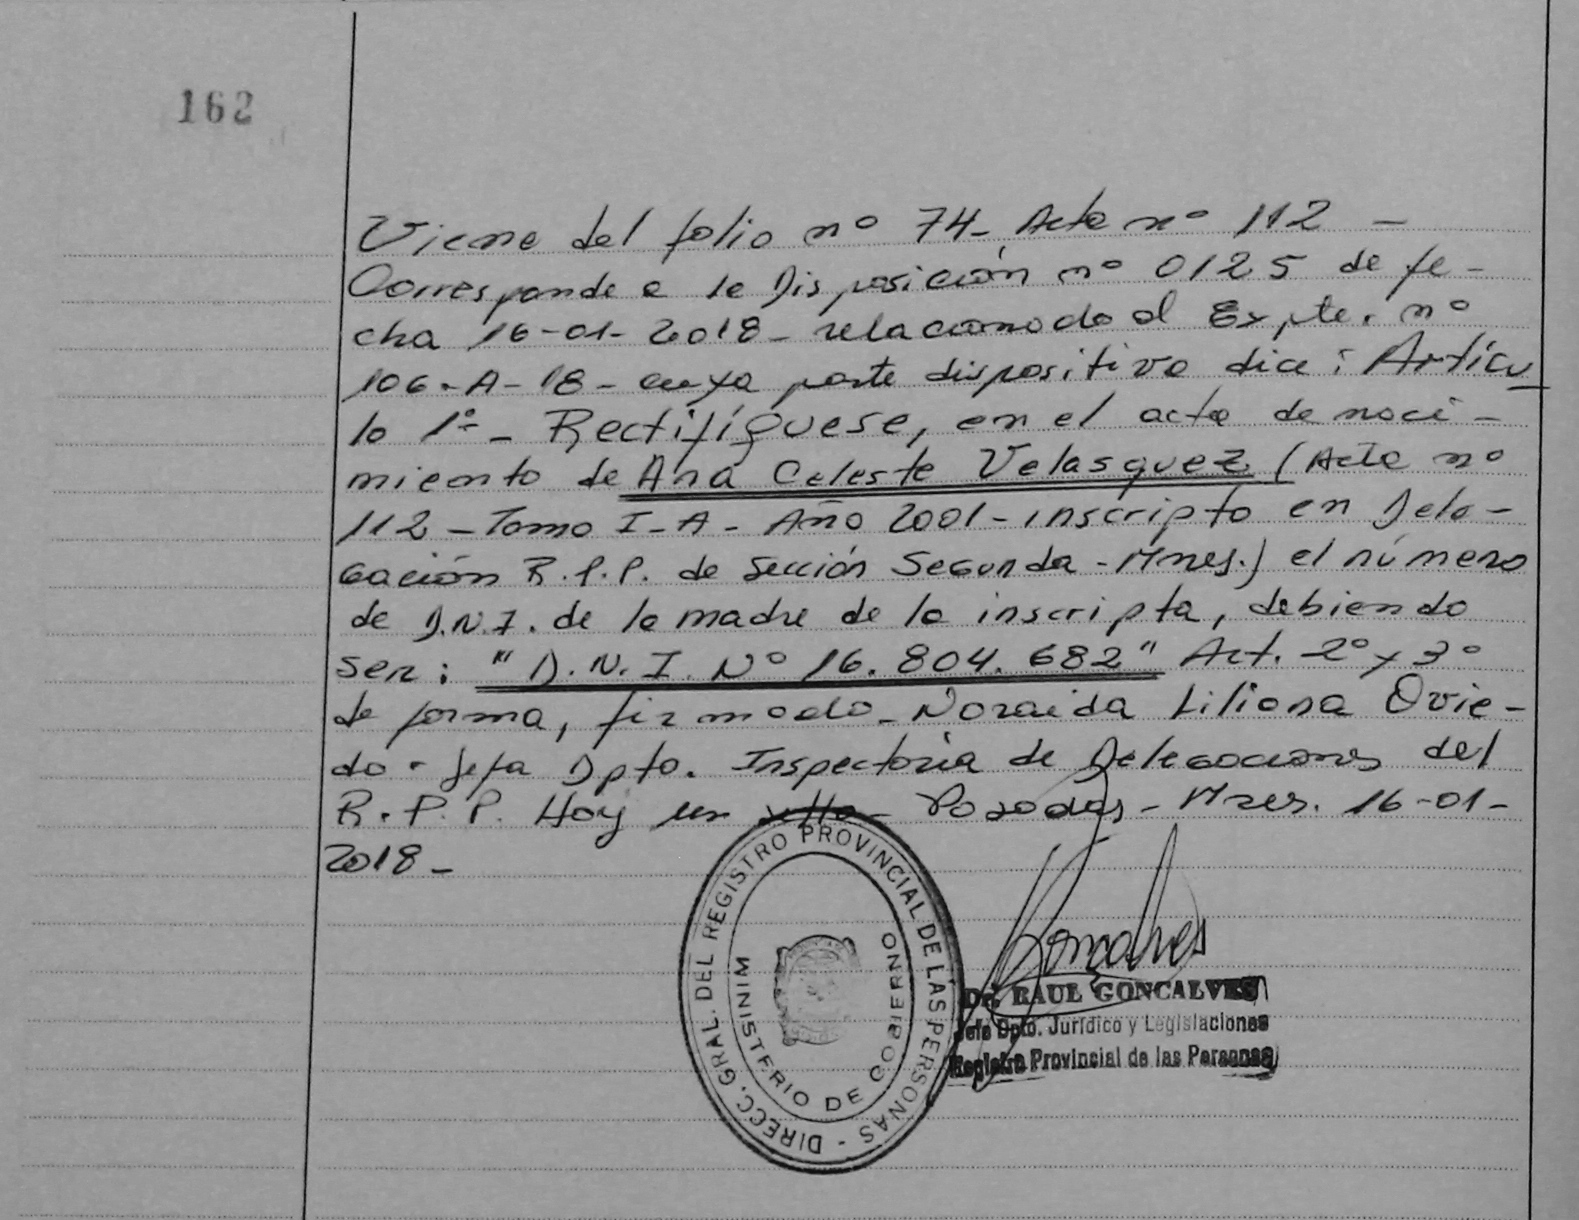 162
Viene del folio nº 74- Acta nº 112 -
Corresponde a la Disposición nº 0125 de fe-
cha 16-01-2018- relacionado al Expte. nº
106-A-18- cuya parte dispositiva dice: Artícu
lo 1º- Rectifíquese, en el acta de naci-
miento de Ana Celeste Velasquez (Acta nº
112 - Tomo I-A- Año 2001- inscripta en Dele-
gación R.P.P. de Sección Segunda - Mnes.) el número
de D.N.I. de la madre de la inscripta, debiendo
ser: "D.N.I. Nº 16.804.682" Art. 2º y 3º
de forma, firmado- Noraida Liliana Ovie-
do - Jefa Dpto. Inspectoría de Delegaciones del
R.P.P. Hay un sello- Posadas - Mnes. 16-01-
2018-
DIRECC. GRAL. DEL REGISTRO PROVINCIAL DE LAS PERSONAS -
MINISTERIO DE GOBIERNO
Goncalves
Dr. RAUL GONCALVES
Jefe Dpto. Jurídico y Legislaciones
Registro Provincial de las Personas